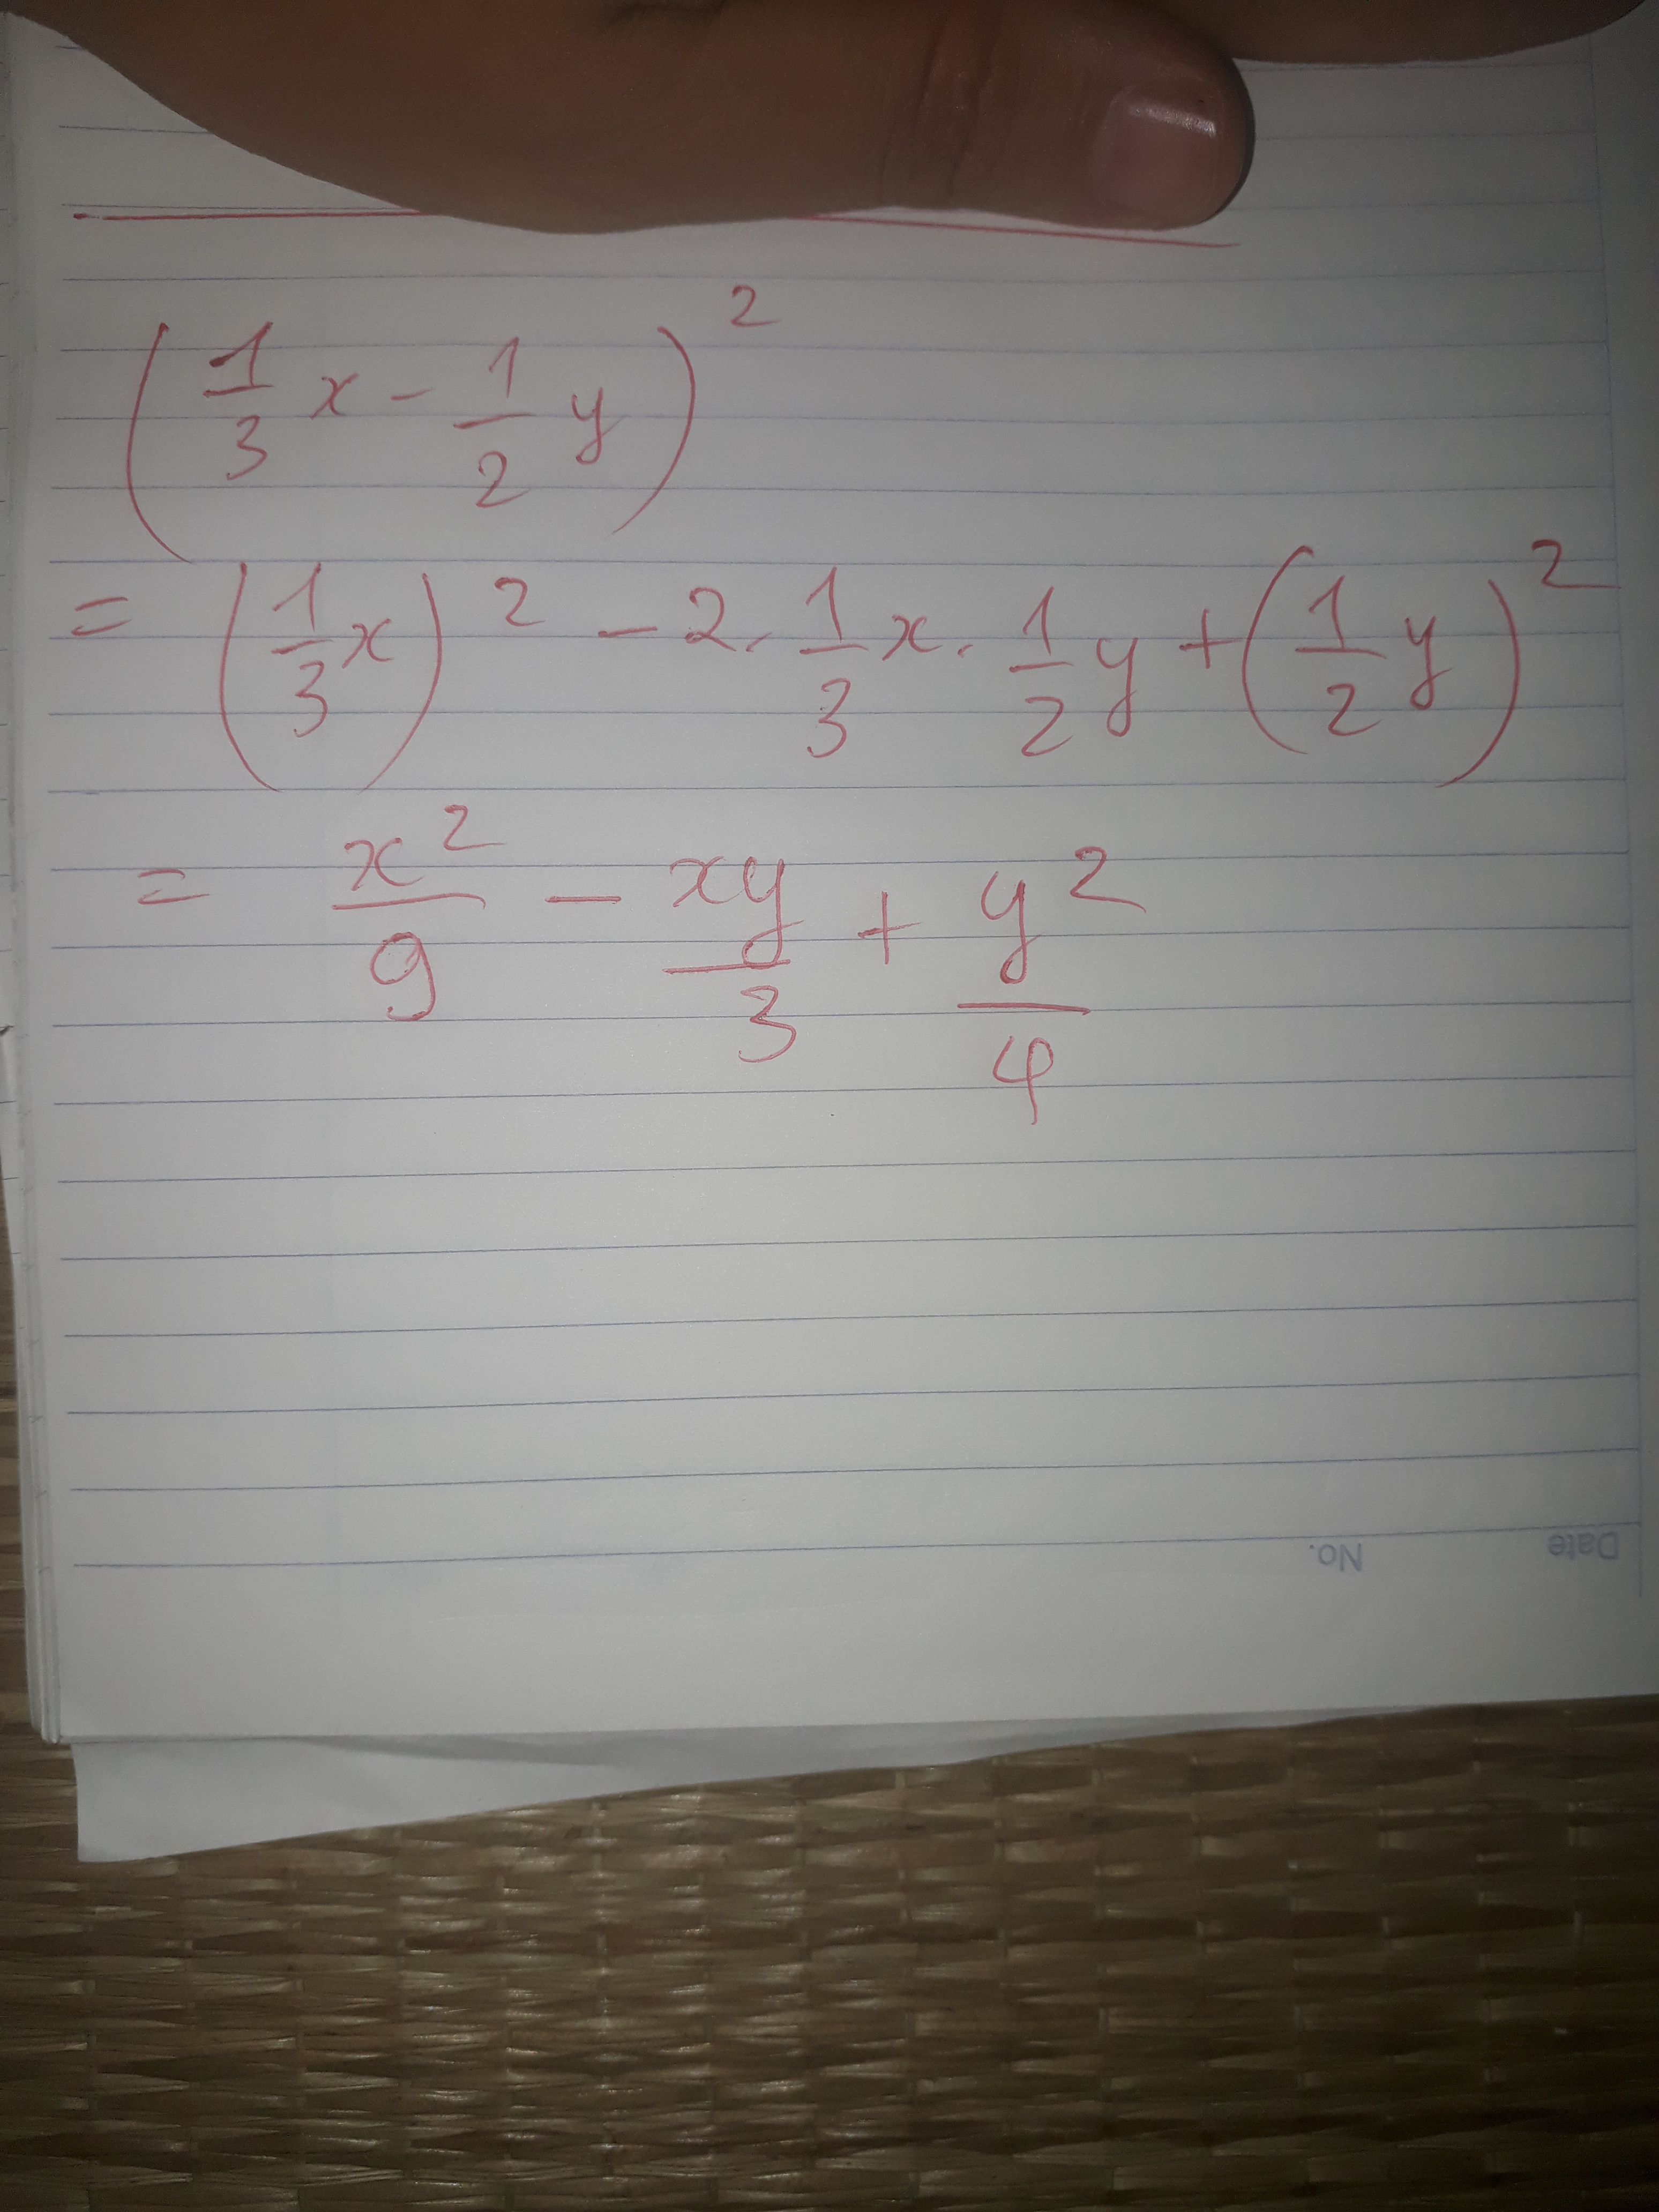 (1/3 x - 1/2 y)²
= (1/3 x)² - 2. 1/3 x. 1/2 y + (1/2 y)²
= x²/9 - xy/3 + y²/4
No. Date